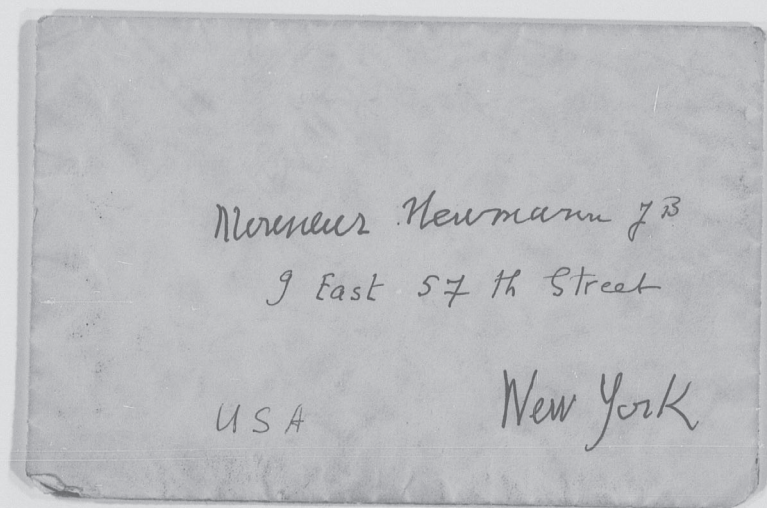 Monsieur Newmann J B
9 East 57 th Street
New York
USA